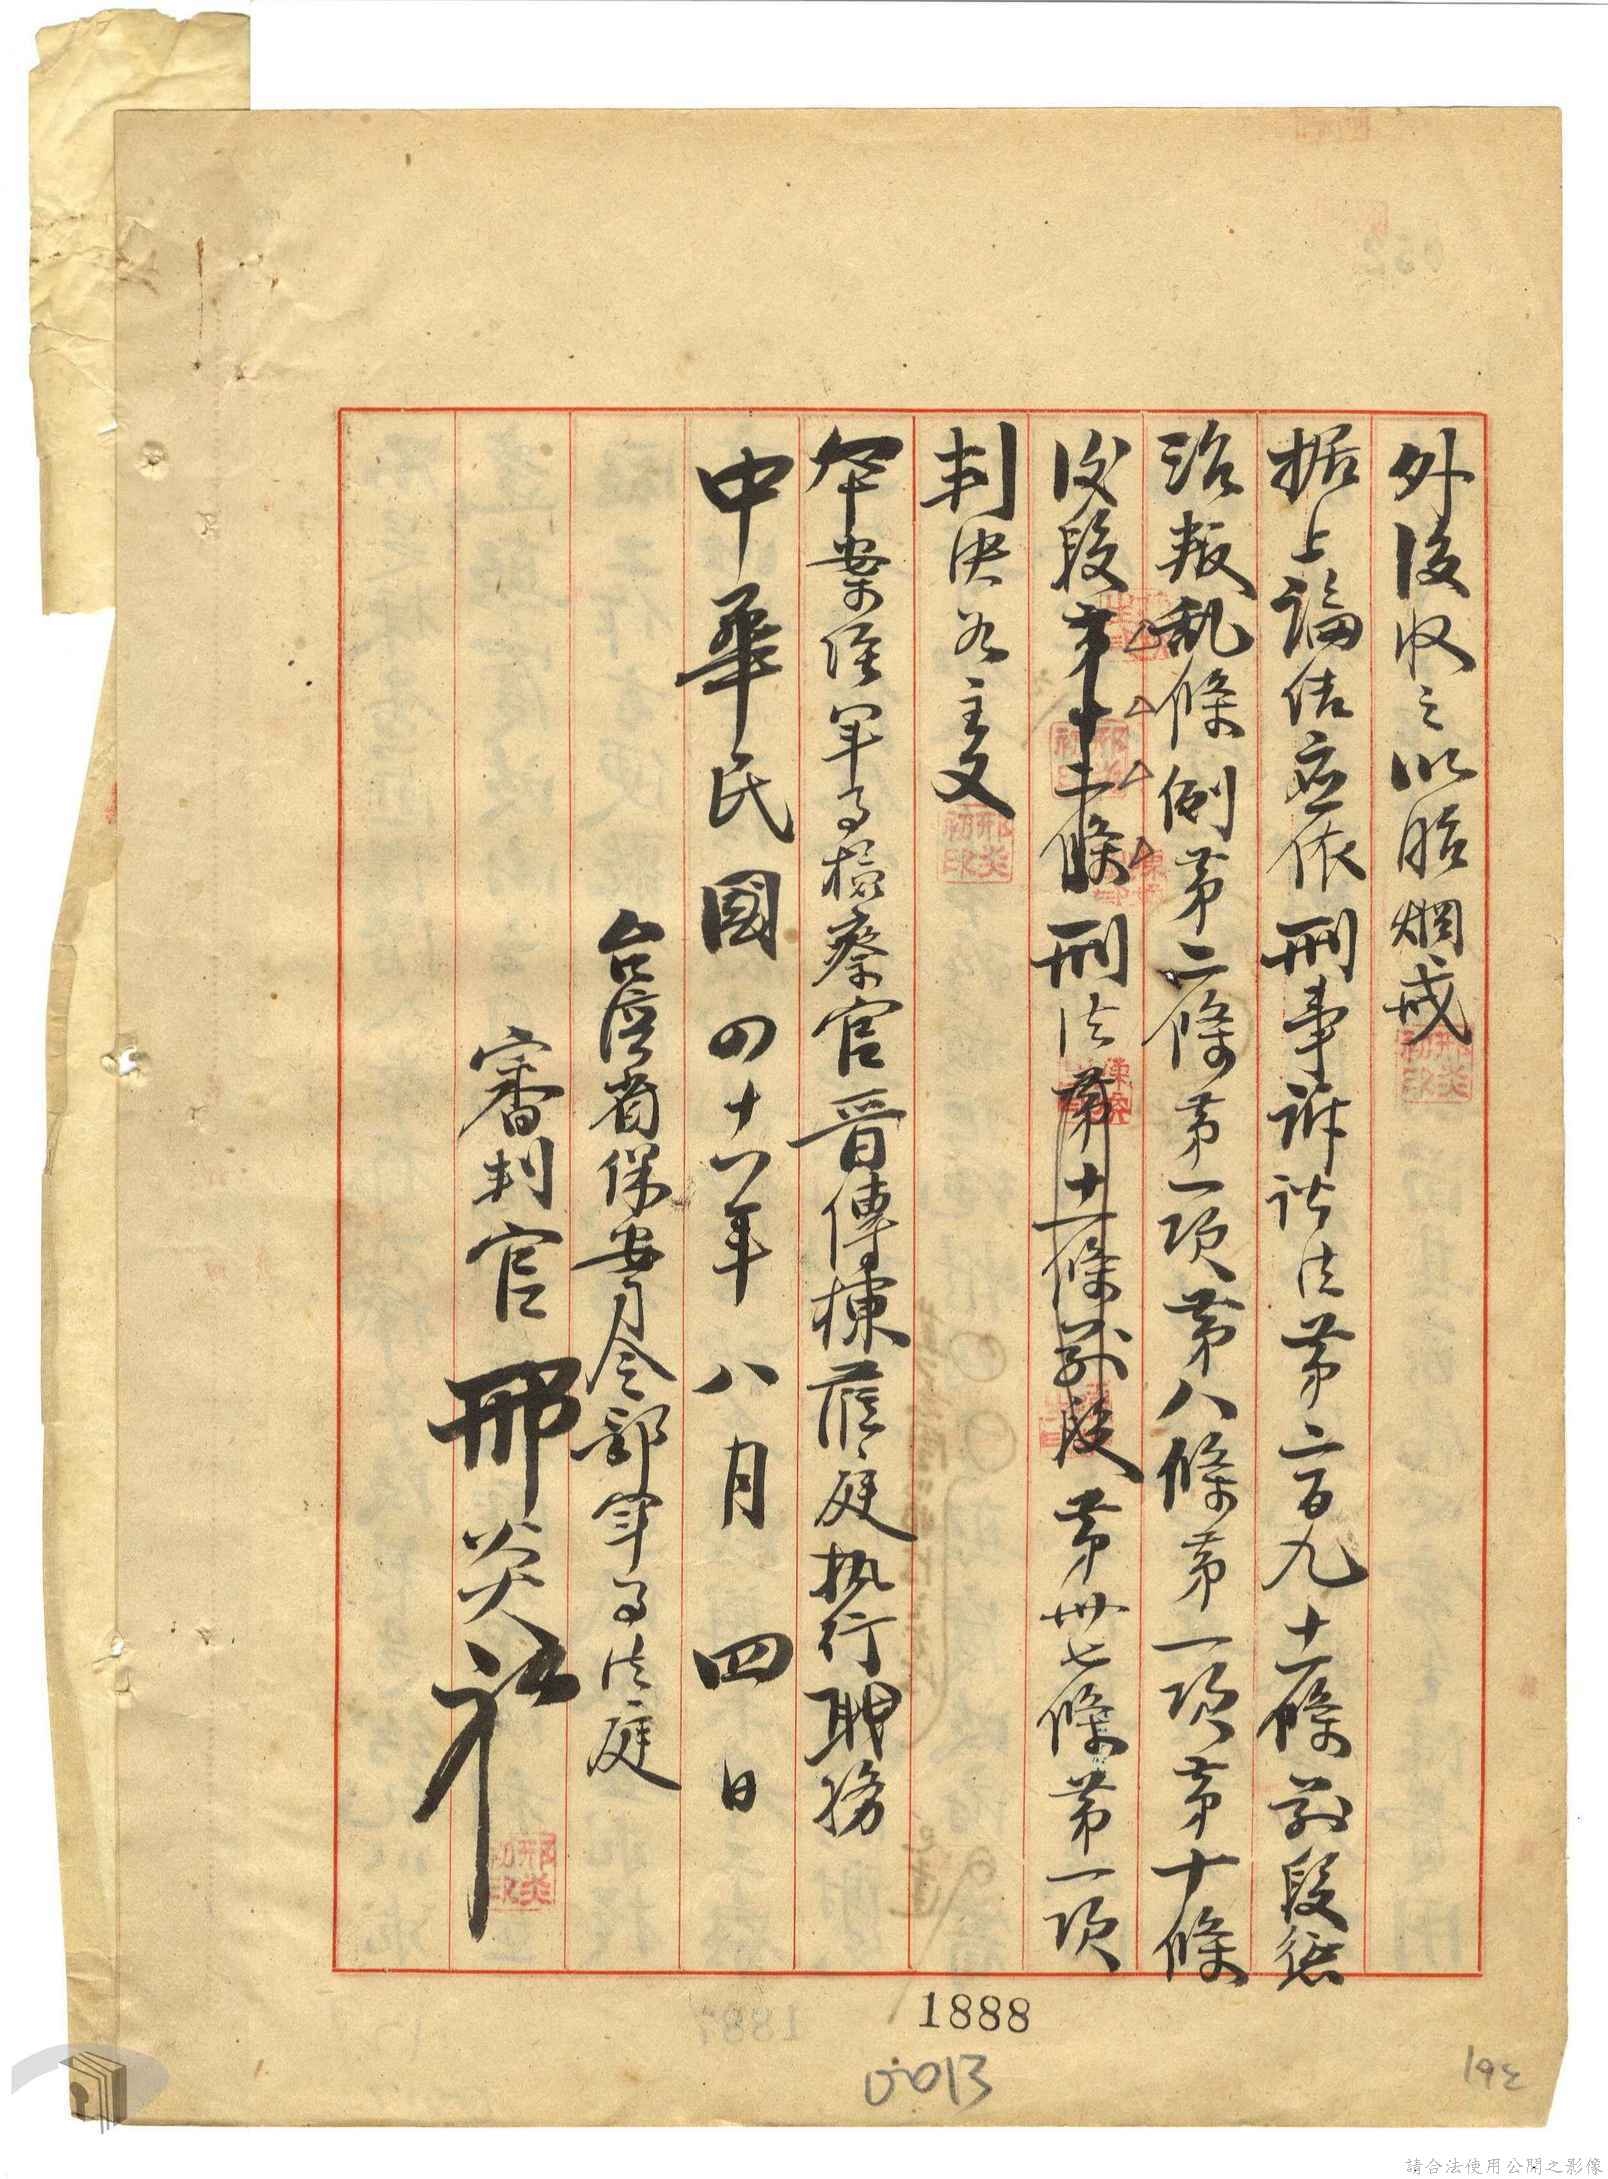 外後收之以貽烱戒
据上論結應依刑事訴訟法第二百九十一條前段懲
治叛乱條例第二條第一項第八條第一項第十條
後段第十二條刑法第十一條前段第卅七條第一項
判決如主文
本案經軍事檢察官晉傳棟蒞庭执行职務
中華民國四十六年八月四日
台湾省保安司令部軍事法庭
審判官 邢炎初
邢炎初印
1888
0013
193
請合法使用公開之影像